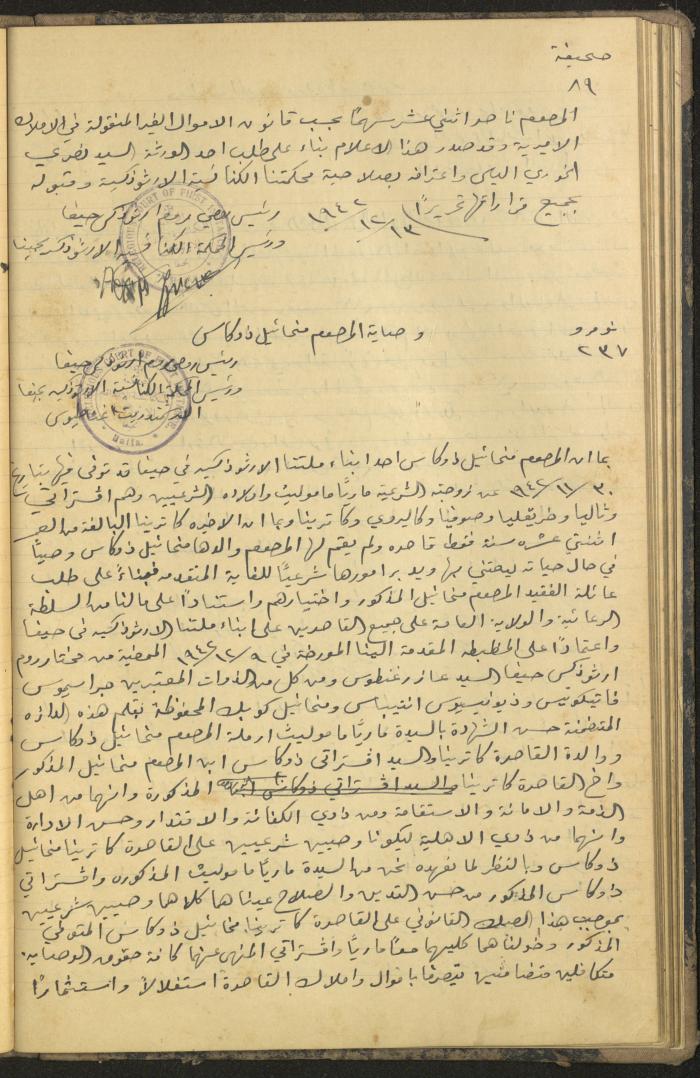 صحيفة
٨٩
المرحوم ناصر اثني عشر سهمًا بحسب قانون الاموال الغير المنقولة في الاملاك
الاميرية وقد صدر هذا الاعلام بناء على طلب احد الورثة السيد
الخوري الياس واعترافه بصلاحية محكمتنا الكنائسية الارثوذكسية وقبوله
بجميع قراراتها تحريرًا ١٣/١٢/١٩٤٢
رئيس روم ارثوذكس حيفا
ورئيس المحكمة الكنائسية الارثوذكسية بحيفا
نومرو
٢٣٧
وصاية المرحوم مخائيل ذوكاس
رئيس روم ارثوذكس حيفا
ورئيس المحكمة الكنائسية الارثوذكسية بحيفا
الارشمندريت
COURT OF FIRST
Haifa
بما ان المرحوم مخائيل ذوكاس احد ابناء ملتنا الارثوذكسية في حيفا قد توفي فيها بتاريخ
٣٠/١١/١٩٤٢ عن زوجته الشرعية ماريا ماموليث واولاده الشرعيين وهم افستراتي
وثاليا وصوفيا وكاليروي وكاترينا وبما ان الاخيرة كاترينا البالغة من العمر
اثنتي عشرة سنة فقط قاصرة ولم يقم لها المرحوم والدها مخائيل ذوكاس وصيًا
في حال حياته ليعتني بها ويدبر امورها شرعيًا للغاية المتقدمة فبناءً على طلب
عائلة الفقيد المرحوم مخائيل المذكور واختيارهم واستنادًا على مالنا من السلطة
الرعائية والولاية العامة على جميع القاصرين على ابناء ملتنا الارثوذكسية في حيفا
واعتمادًا على المظبطه المقدمة الينا المورخة في ٩/١٢/١٩٤٢ الممضية من مختار روم
ارثوذكس حيفا السيد عازر غنطوس ومن كل من الذوات المعتبرين جراسيموس
فاتيكوتيس وذيونيسيوس ومخائيل كوبك المحفوظة بقلم هذه الدائره
المتضمنة حسن الشهادة بالسيدة ماريا ماموليث ارملة المرحوم مخائيل ذوكاس
ووالدة القاصرة كاترينا والسيد افستراتي ذوكاس ابن المرحوم مخائيل المذكور
واخ القاصرة كاترينا والسيد افستراتي ذوكاس المذكورة وانهما من اهل
الذمة والامانة والاستقامة ومن ذوي الكفائة والاقتدار وحسن الادارة
وانهما من ذوي الاهلية ليكونا وصيين شرعيين على القاصرة كاترينا مخائيل
ذوكاس وبالنظر لما نعهده نحن من السيدة ماريا ماموليث المذكوره وافستراتي
ذوكاس المذكور من حسن التدين والصلاح عيناهما كلاهما وصيين شرعيين
بموجب هذا الصك القانوني على القاصرة كاترينا مخائيل ذوكاس المتوفي
المذكور وخولناهما كليهما معًا ماريا وافستراتي المنهى عنهما كافة حقوق الوصاية
متكافلين متضامنين يتصرفا باموال واملاك القاصرة استغلالاً واستثمارًا